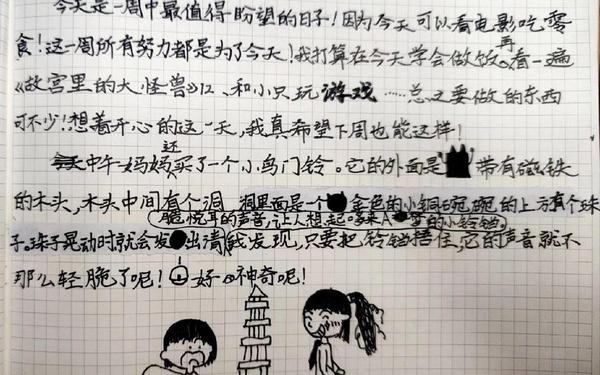 今天是一周中最值得盼望的日子！因为今天可以看电影吃零
食！这一周所有努力都是为了今天！我打算在今天学会做饭。再看一遍
《故宫里的大怪兽》12、和小只玩游戏……总之要做的东西
可不少！想着开心的这一天，我真希望下周也能这样！
中午妈妈还买了一个小鸟门铃。它的外面是带有磁铁
的木头，木头中间有个洞，洞里面是一个金色的小铜碗，碗的上方有个珠
子。珠子晃动时就会发出清
脆悦耳的声音，让人想起哆来A梦的小铃铛。
我发现，只要把铃铛捂住，它的声音就不
那么轻脆了呢！好神奇呢！